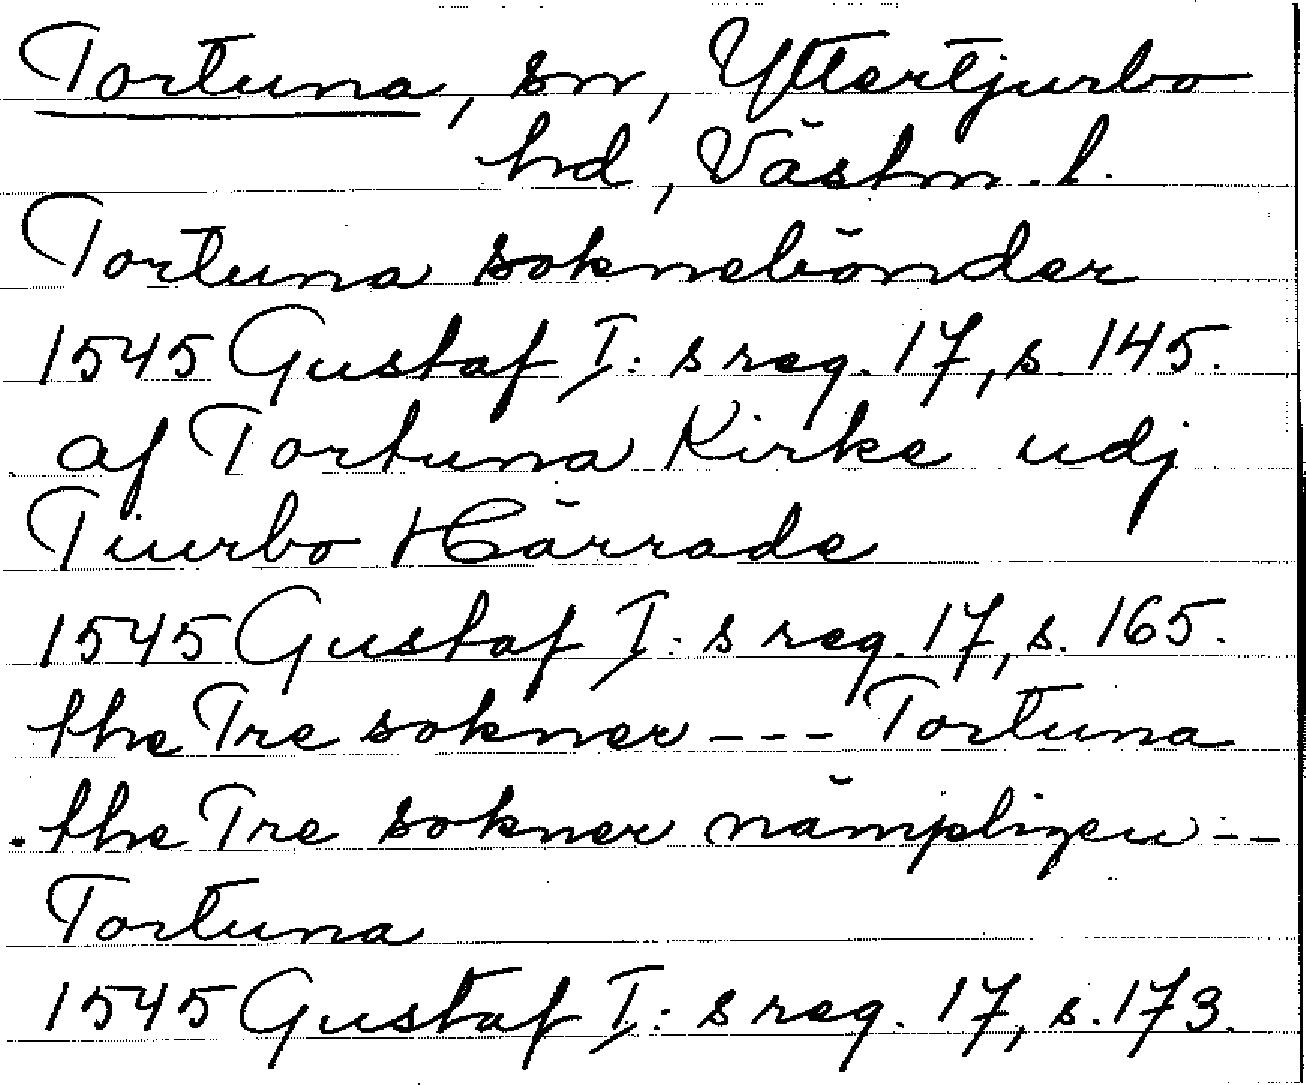 Tortuna, sn, Yttertjurbo
hd, Västm. l.
Tortuna soknebönder
1545 Gustaf I:s reg. 17, s. 145.
af Tortuna Kirke udj
Tiurbo Härrade
1545 Gustaf I:s reg. 17, s. 165.
the Tre sokner --- Tortuna
the Tre sokner nämpligen --
Tortuna
1545 Gustaf I:s reg. 17, s. 173.